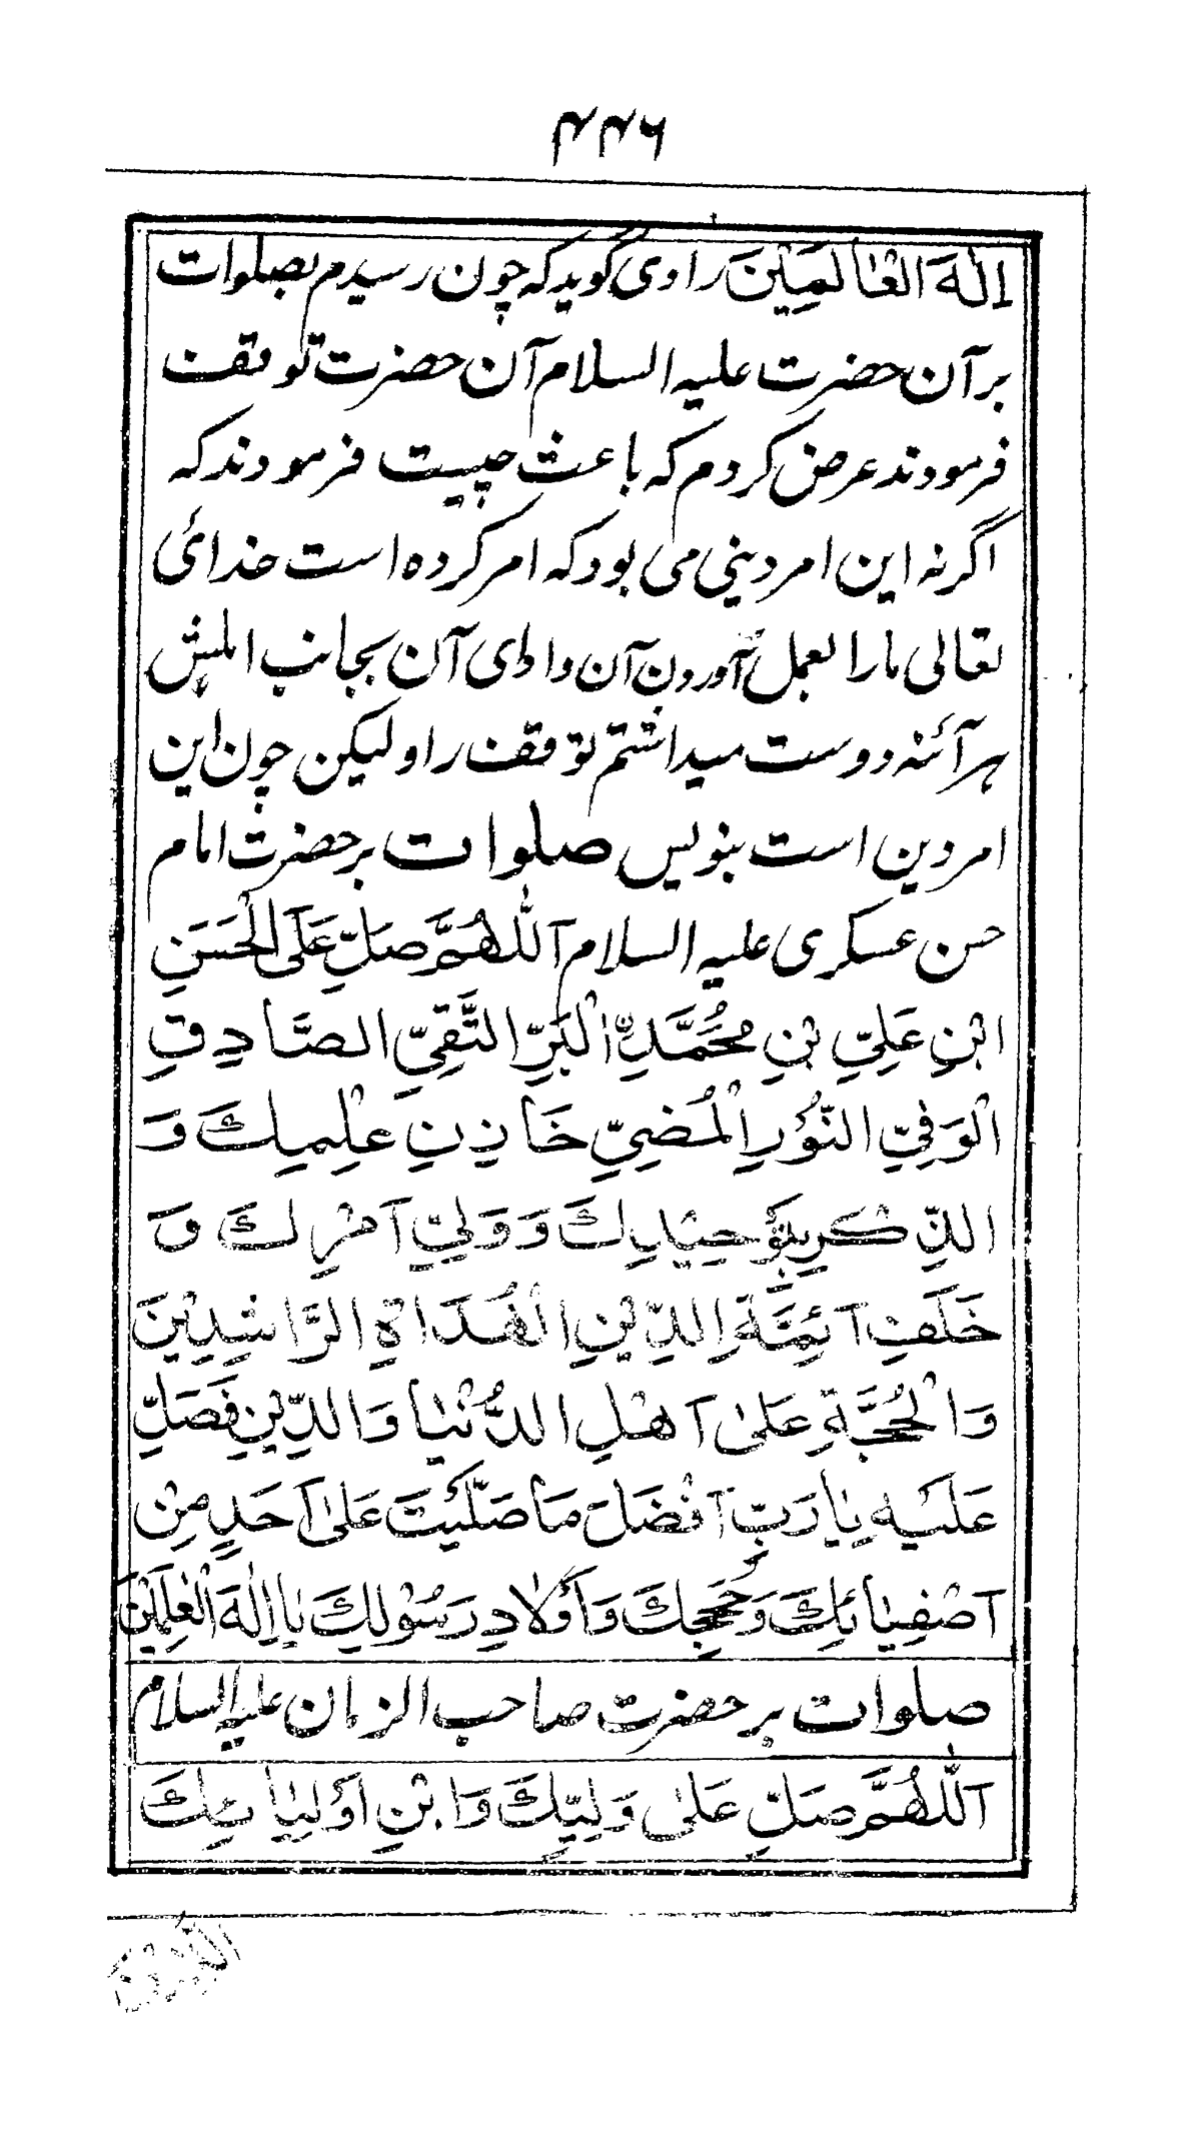 ۴۴۶
اِلٰهَ الْعَالَمِيْنَ راوی گوید که چون رسیدم بصلوات
بر آن حضرت علیه السلام آن حضرت توقف
فرمودند عرض کردم که باعث چیست فرمودند که
اگر نه این امر دینی می بود که امر کرده است خدائ
تعالی ما را بعمل آوردن آن و ادای آن بجانب اهلش
هر آئنه دوست میداشتم توقف را و لیکن چون این
امر دین است بنویس صلوات بر حضرت امام
حسن عسکری علیه السلام اَللّٰهُمَّ صَلِّ عَلَى الْحَسَنِ
ابْنِ عَلِيِّ بْنِ مُحَمَّدٍ الْبَرِّ التَّقِيِّ الصَّادِقِ
الْوَفِيِّ النُّوْرِ الْمُضِيِّ خَازِنِ عِلْمِكَ وَ
الذِّكْرِ بِتَوْحِيْدِكَ وَ وَلِيِّ اَمْرِكَ وَ
خَلَفِ اَئِمَّةِ الدِّيْنِ الْهُدَاةِ الرَّاشِدِيْنَ
وَالْحُجَّةِ عَلٰى اَهْلِ الدُّنْيَا وَالدِّيْنِ فَصَلِّ
عَلَيْهِ يَا رَبِّ اَفْضَلَ مَا صَلَّيْتَ عَلٰى اَحَدٍ مِنْ
اَصْفِيَائِكَ وَحُجَجِكَ وَاَوْلَادِ رَسُوْلِكَ يَا اِلٰهَ الْعٰلَمِيْنَ
صلوات بر حضرت صاحب الزمان علیه السلام
اَللّٰهُمَّ صَلِّ عَلٰى وَلِيِّكَ وَابْنِ اَوْلِيَائِكَ